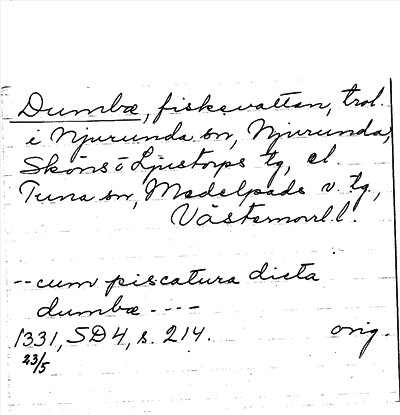 Dumbæ, fiskevatten, trol.
i Njurunda sn, Njurunda,
Sköns o Ljustorps tg, el.
Tuna sn, Medelpads v. tg,
Västernorrl. l.
-- cum piscatura dicta
dumbæ ----
1331, SD4, s. 214. orig.
23/5